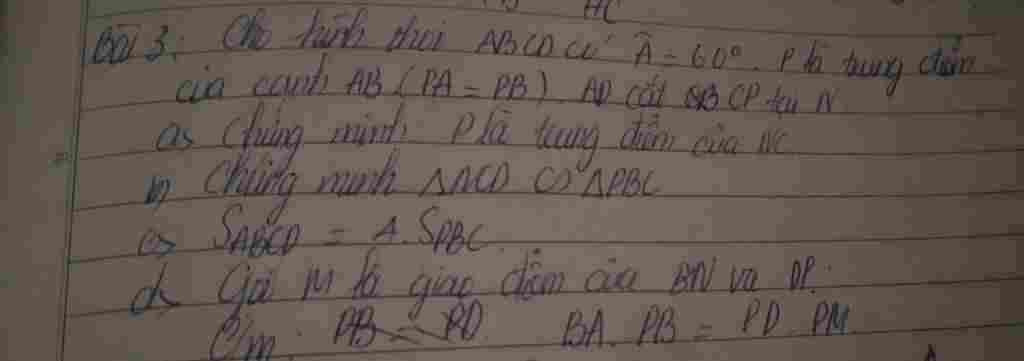 AC
Bài 3: Cho hình thoi ABCD có Â = 60°. P là trung điểm
của cạnh AB (PA = PB). AD cắt CP tại N
a, Chứng minh P là trung điểm của NC
b, Chứng minh ΔACD ∽ ΔPBC
c, SABCD = 4. SPBC.
d, Gọi M là giao điểm của BN và DP.
C/m: PB = PD BA. PB = PD. PM